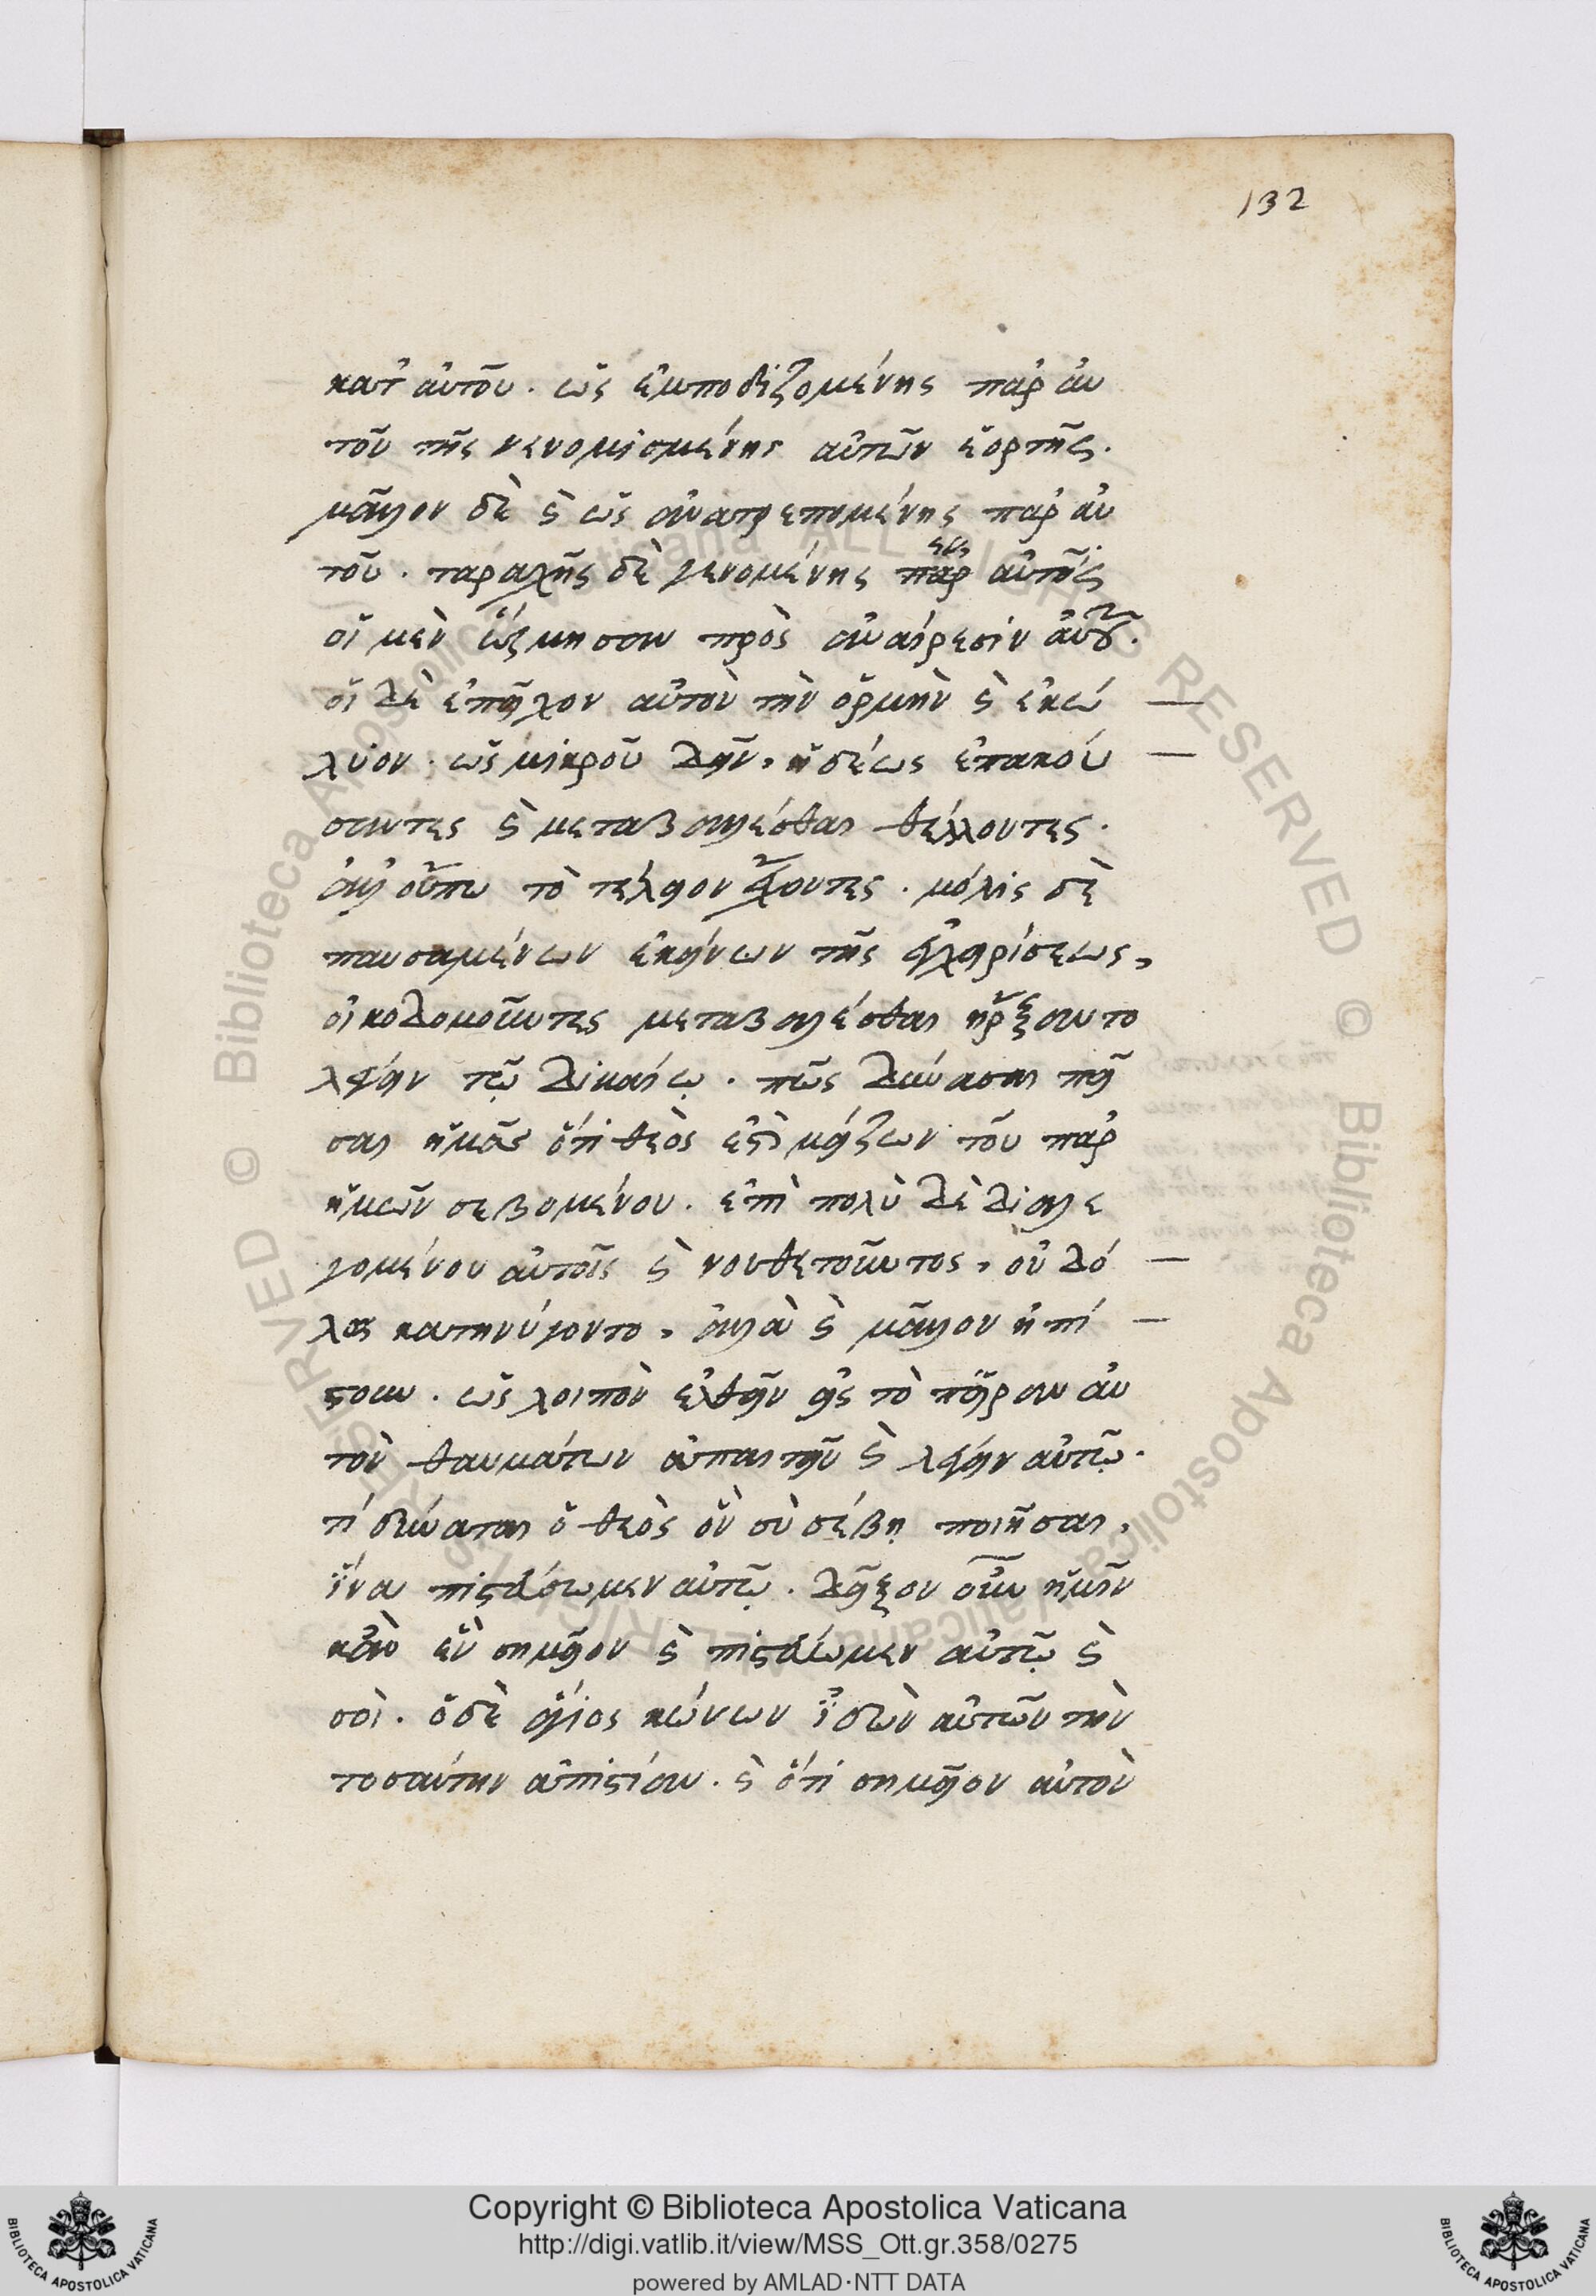 132
κατ' αὐτοῦ. ὡς ἐμποδιζομένης παρ' αὐ
τοῦ τῆς νενομισμένης αὐτῶν ἑορτῆς.
μᾶλλον δὲ καὶ ὡς ἀνατρεπομένης παρ' αὐ
τοῦ. ταραχῆς δὲ γενομένης παρ' αὐτοῖς
οἱ μὲν ὥρμησαν πρὸς ἀναίρεσιν αὐτοῦ.
οἱ δὲ ἐπεῖχον αὐτὸν τὴν ὁρμὴν καὶ ἐκώ
λυον. ὡς μικροῦ δεῖν, ἡδέως ἐπακού
σαντες καὶ μεταβαλέσθαι θέλλοντες.
ἀλλ' οὔπω τὸ τέλειον ἔχοντες. μόλις δὲ
παυσαμένων ἐκείνων τῆς ἐγχειρίσεως,
οἰκοδομοῦντες μεταβαλέσθαι ἤρξαντο
λέγειν τῷ δικαίῳ. πῶς δύνασαι πεῖ
σαι ἡμᾶς ὅτι θεὸς ἐστὶ μείζων τοῦ παρ'
ἡμῶν σεβομένου. ἐπὶ πολὺ δὲ διαλε
γομένου αὐτοῖς καὶ νουθετοῦντος, οὐδό
λως κατηνύγοντο, ἀλλὰ καὶ μᾶλλον ἠπί
στουν. ὡς λοιπὸν ἐλθεῖν εἰς τὸ πεῖραν αὐ
τὸν θαυμάτων ἀπαιτεῖν καὶ λέγειν αὐτῷ.
τί δύναται ὁ θεὸς ὃν σὺ σέβῃ ποιῆσαι,
ἵνα πιστεύσωμεν αὐτῷ. δεῖξον οὖν ἡμῖν
κἂν ἓν σημεῖον καὶ πιστεύωμεν αὐτῷ καὶ
σοὶ. ὁ δὲ ἅγιος κώνων ἰδὼν αὐτῶν τὴν
τοσαύτην ἀπιστίαν. καὶ ὅτι σημεῖον αὐτὸν
Copyright © Biblioteca Apostolica Vaticana
http://digi.vatlib.it/view/MSS_Ott.gr.358/0275
powered by AMLAD·NTT DATA
BIBLIOTECA APOSTOLICA VATICANA
BIBLIOTECA APOSTOLICA VATICANA